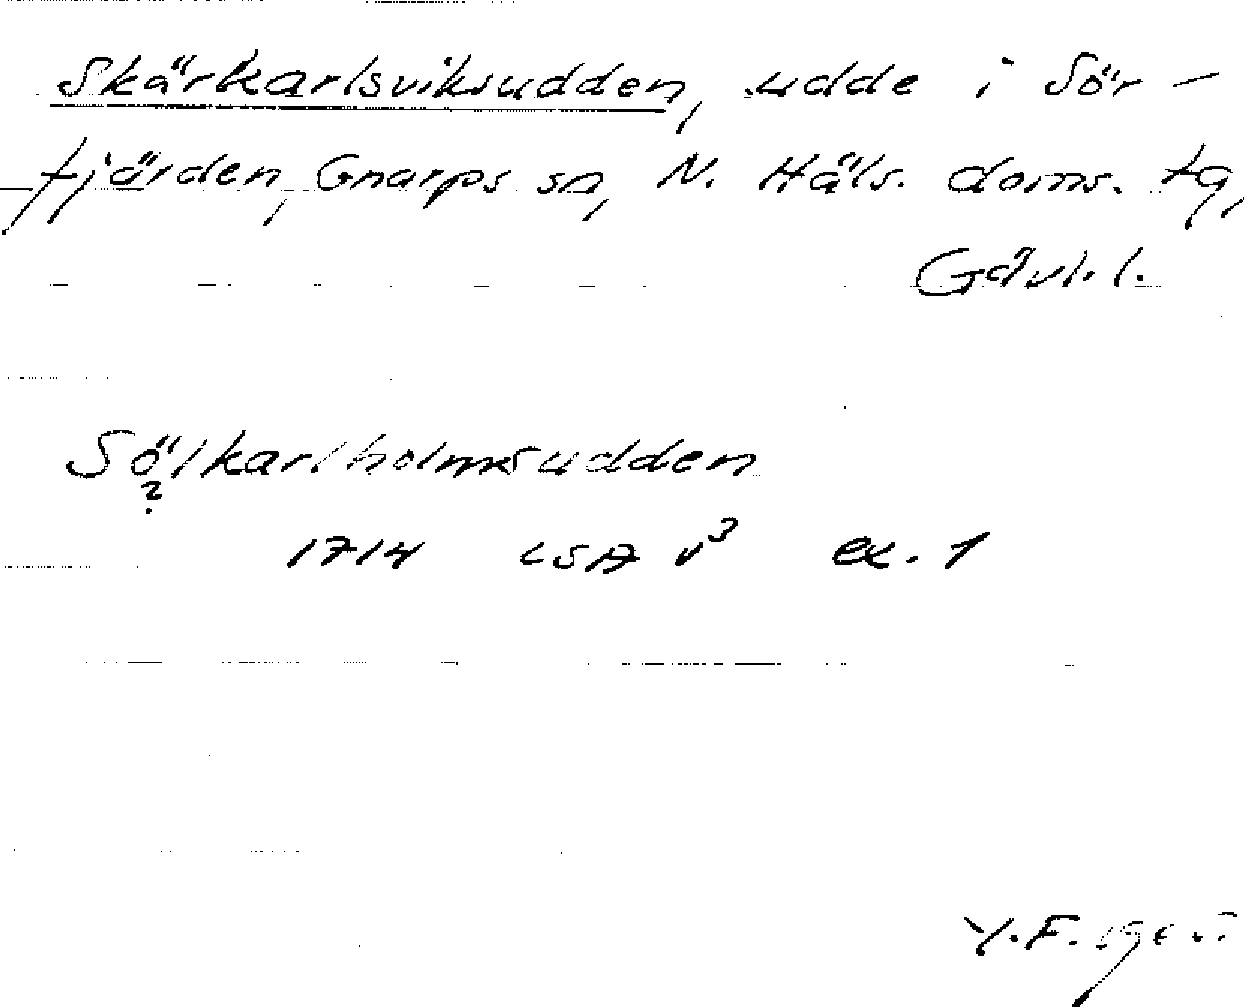 Skärkarlsviksudden, udde i Sör-
fjärden, Gnarps sn, N. Häls. doms. tg,
Gävl. l.
Sölkarlholmsudden
?
1714 LSA v³ ex. 1
Y.F.